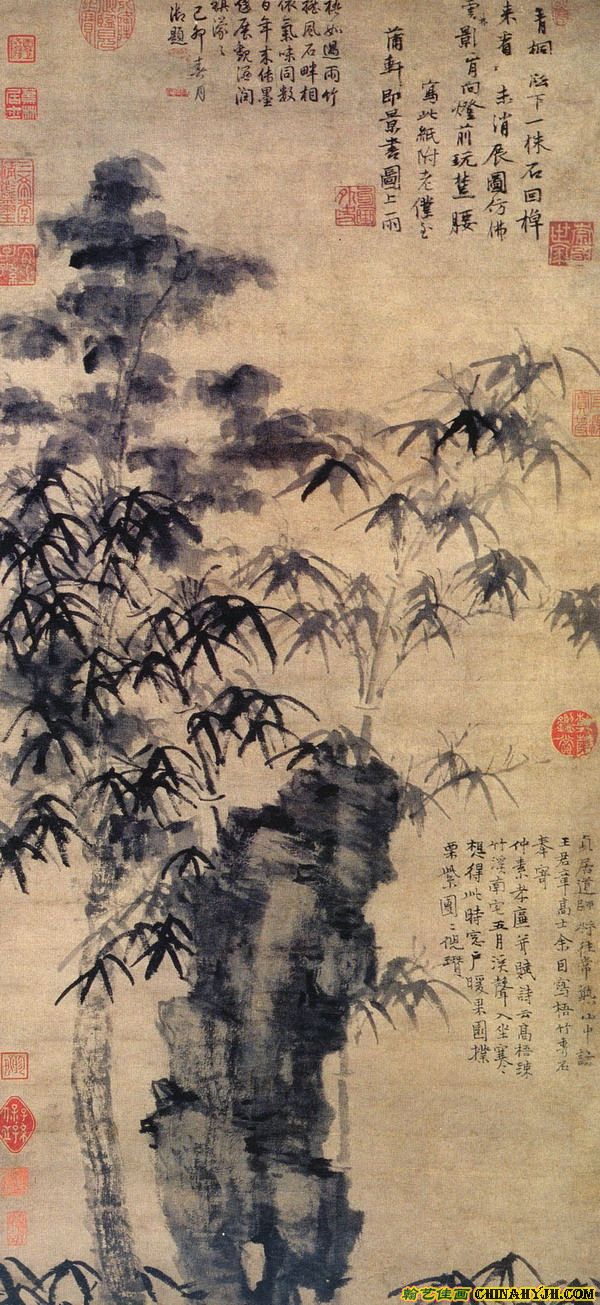 青桐陰下一株石回棹
來看未消展圖仿佛
雲影肯向燈前玩楚腰
寫此紙附老僕至
蒲軒即景書圖上一雨
梧如過雨竹
摇風石畔相
依氣味同數
百年来傳墨
展觀滋潤
濛〻
己卯春月
御題
貞居道師將往常熟山中訪
王君章高士余因寫梧竹秀石
奉寄
仲素孝廉并賦詩云高梧疎
竹溪南宅五月溪聲入坐寒
想得此時窓戶暖果園撲
栗紫團〻倪瓚
翰艺佳画 CHINAHYJH.COM